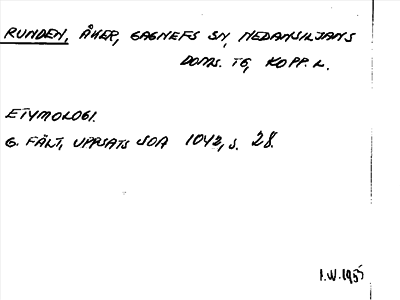 RUNDEN, ÅKER, GAGNEFS SN, NEDANSILJANS
DOMS. TG, KOPP. L.
ETYMOLOGI.
G. FÄLT, UPPSATS SOA 1042, S. 28.
I.W. 1955